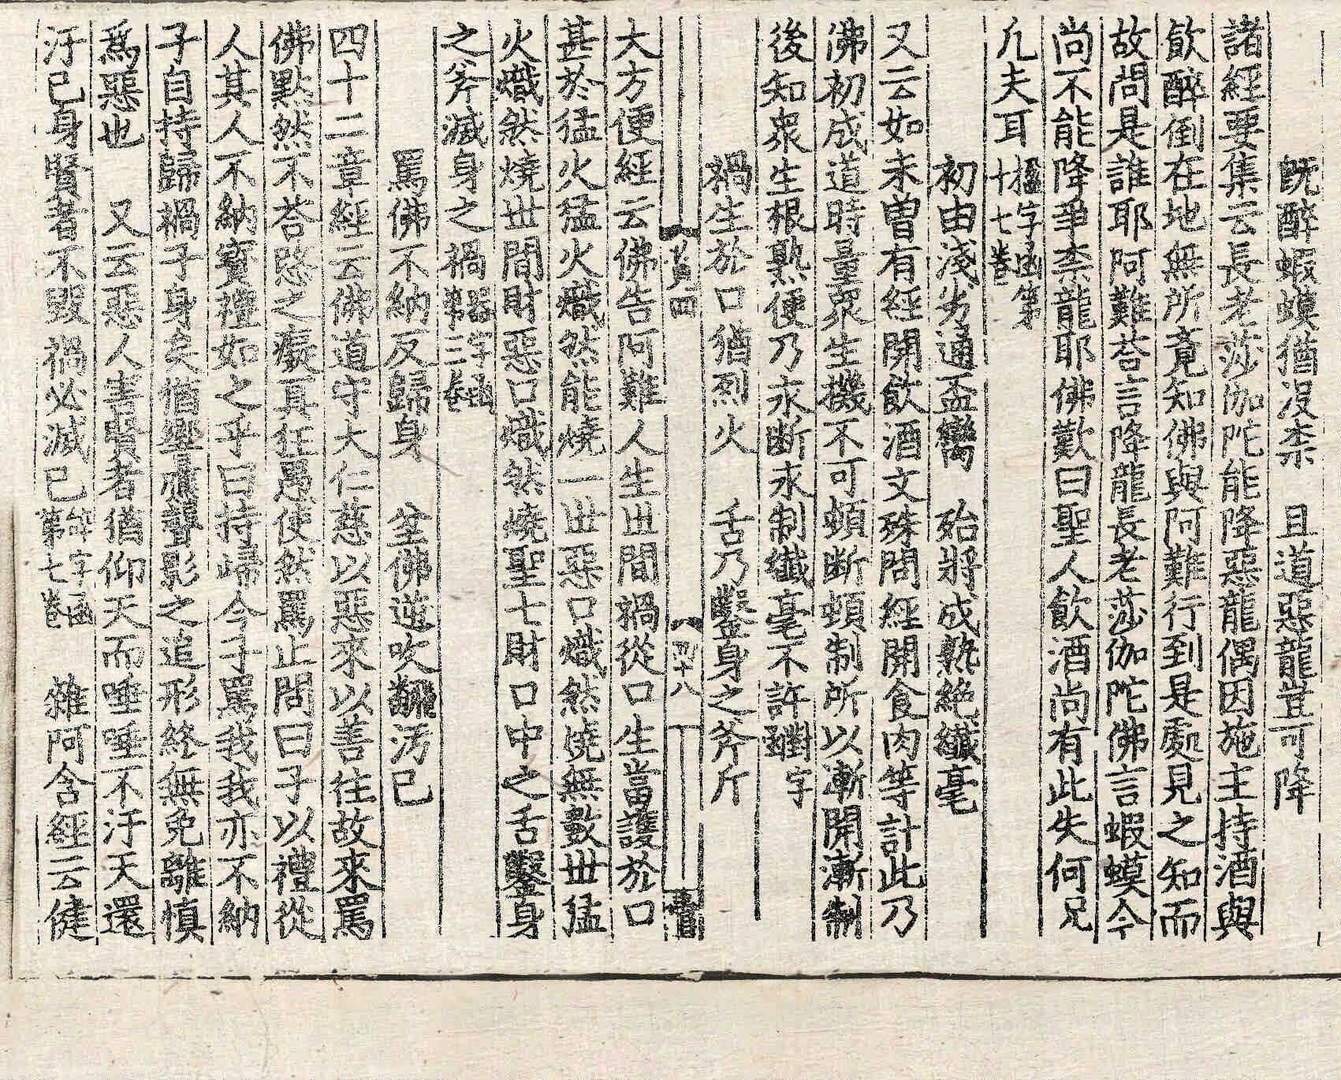 既醉蝦蟆猶沒柰　且道惡龍豈可降
諸經要集云長老莎伽陀能降惡龍偶因施主持酒與
飮醉倒在地無所竟知佛與阿難行到是處見之知而
故問是誰耶阿難荅言降龍長老莎伽陀佛言蝦蟆今
尚不能降爭柰龍耶佛歎曰聖人飮酒尚有此失何況
凡夫耳楹字函第十七卷
初由淺劣通盃臠　殆將成熟絕纎毫
又云如未曾有經開飮酒文殊問經開食肉等計此乃
佛初成道時量衆生機不可頓斷頓制所以漸開漸制
後知衆生根熟便乃永斷永制纎毫不許對字
禍生於口猶烈火　舌乃鑿身之斧斤
大方便經云佛告阿難人生世間禍從口生當護於口
甚於猛火猛火熾然能燒一世惡口熾然燒無數世猛
火熾然燒世間財惡口熾然燒聖七財口中之舌鑿身
之斧滅身之禍器字函第三卷
罵佛不納反歸身　坌佛逆吹翻汚己
四十二章經云佛道守大仁慈以惡來以善往故來罵
佛默然不荅愍之癡冥狂愚使然罵止問曰子以禮從
人其人不納寶禮如之乎曰持歸今子罵我我亦不納
子自持歸禍子身矣猶響應聲影之追形終無免離愼
爲惡也　又云惡人害賢者猶仰天而唾唾不汙天還
汙己身賢者不毀禍必滅己竿字函第七卷　雜阿含經云健